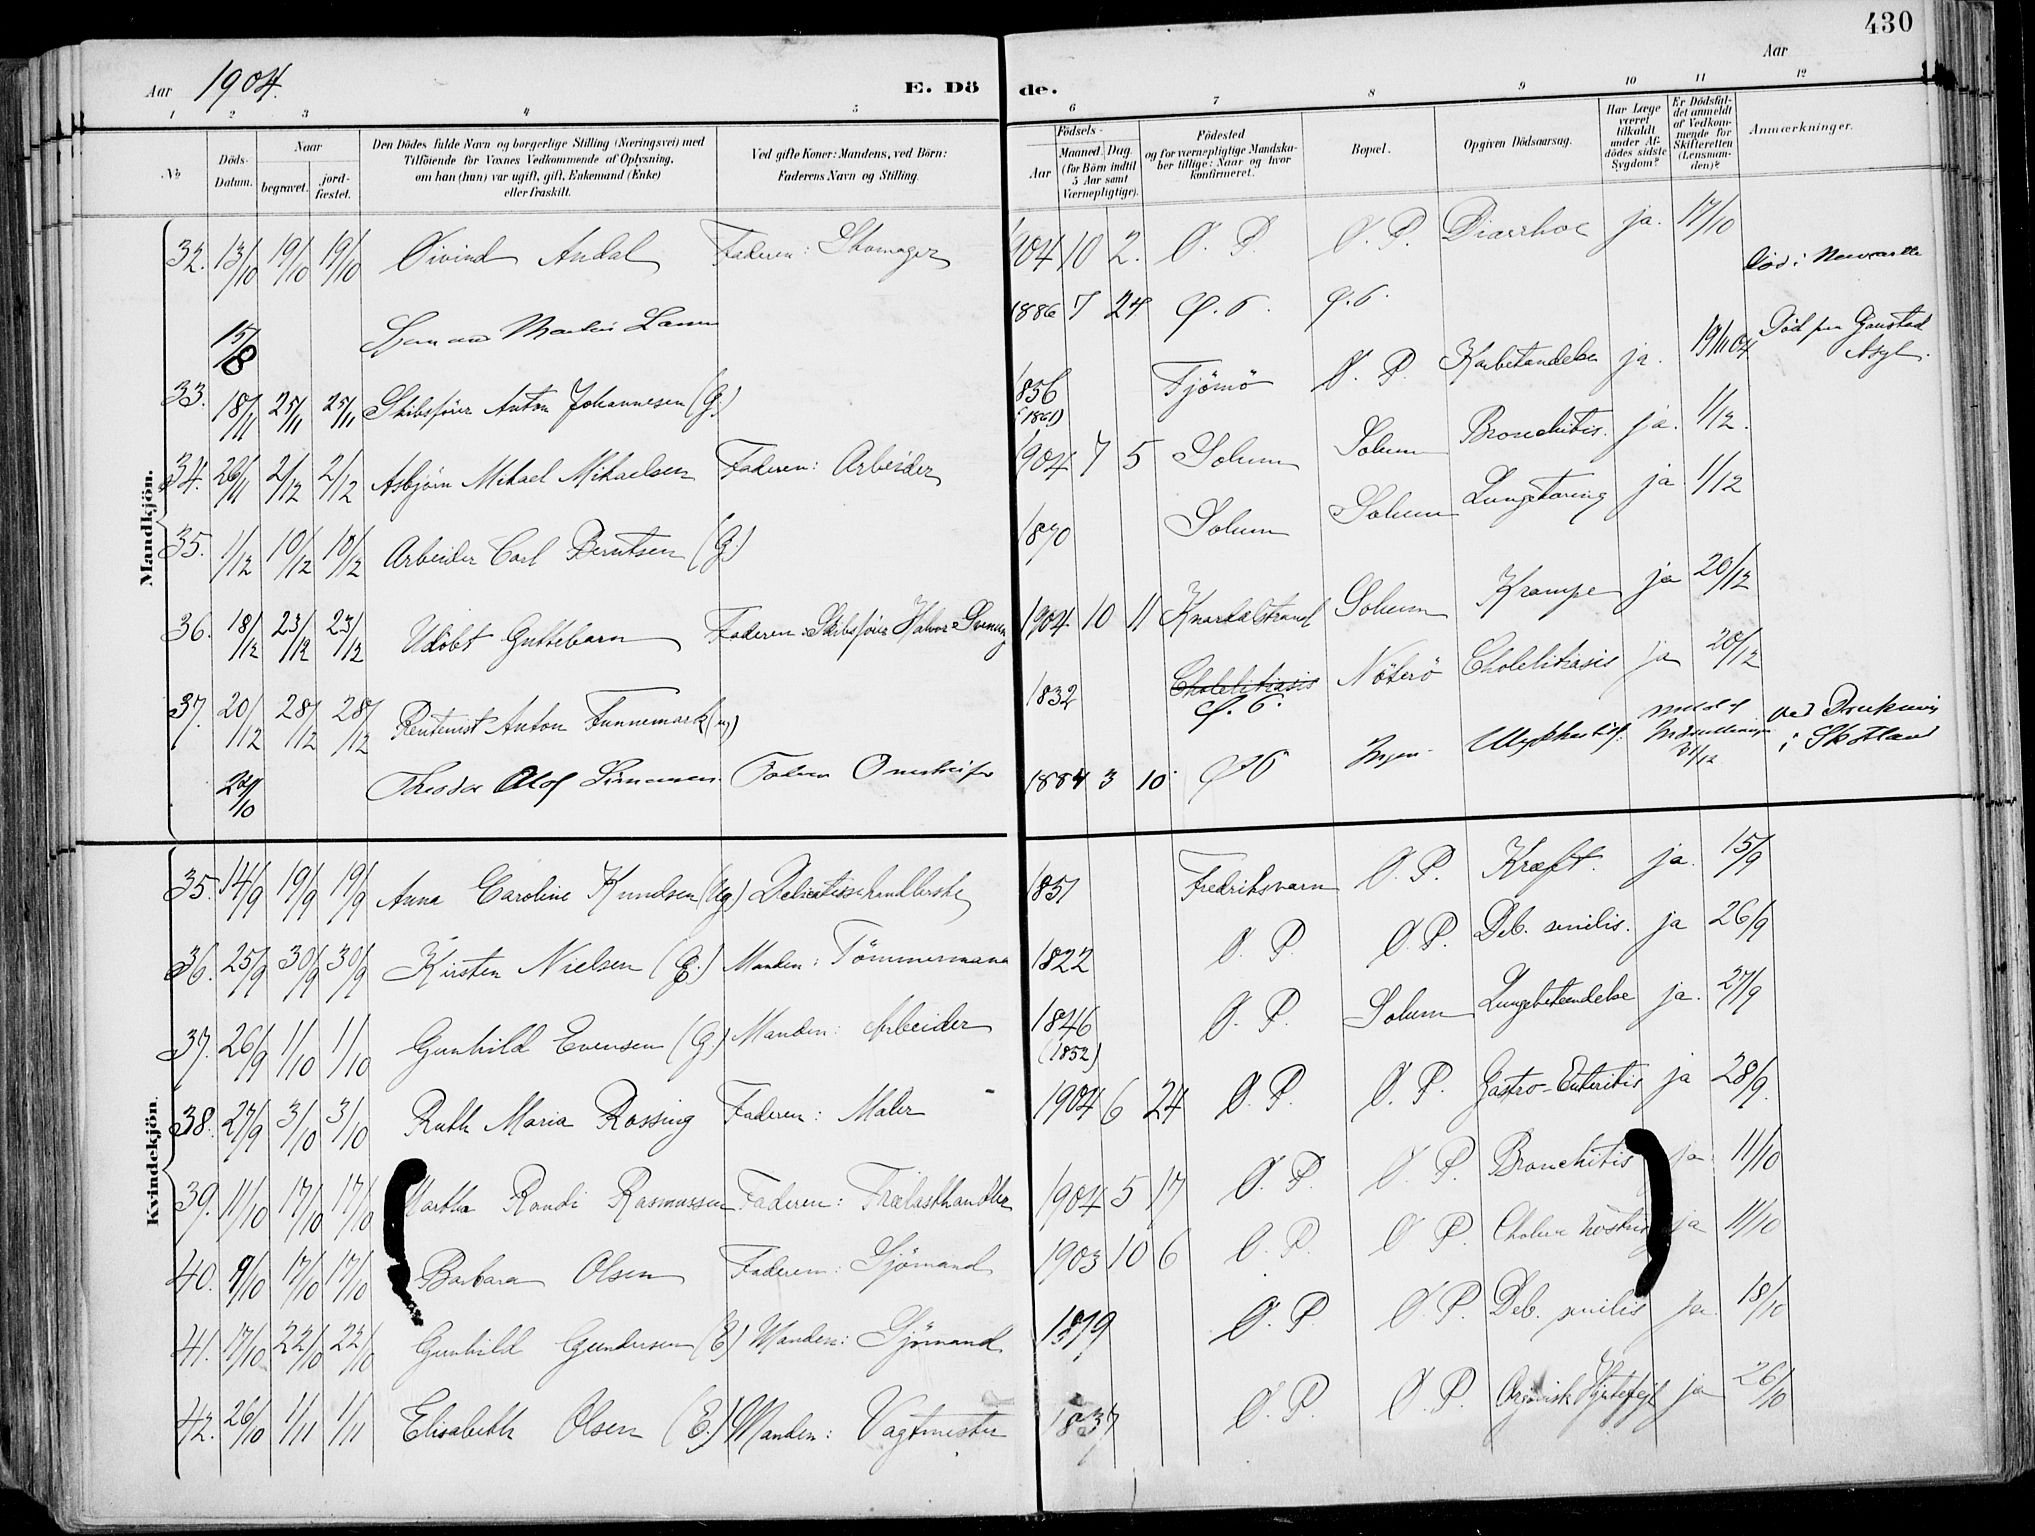 430
Aar 1904. E. Dö de. Aar
1 2 3 4 5 6 7 8 9 10 11 12
No
Döds-Datum.
Naar
begravet.
jord-fæstet.
Den Dödes fulde Navn og borgerlige Stilling (Næringsvei) med
Tilföiende for Voxnes Vedkommende af Oplysning,
om han (hun) var ugift, gift, Enkemand (Enke)
eller fraskilt.
Ved gifte Koner: Mandens, ved Börn:
Faderens Navn og Stilling.
Födsels-
Aar
Maaned. Dag.
(for Börn indtil
5 Aar samt
Værnepligtige).
Födested
og for værnepligtige Mandska-
ber tillige: Naar og hvor
konfirmeret.
Bopæl.
Opgiven Dödsaarsag.
Har Læge
været
tilkaldt
under Af-
dödes sidste
Sygdom?
Er Dödsfal-
det anmeldt
af Vedkom-
mende for
Skifteretten
(Lensman-
den)?
Anmærkninger.
Mandkjön.
32. 13/10 19/10 19/10 Øivind Andal Faderen: Skomager 1904 10 2. Ø. P. Ø. P. Diarrhoe ja. 17/10
15/8 Martin 1886 7 24 Ø. P. Ø. P. Död i Newcastle
33. 18/11 25/11 25/11 Skibsförer Anton Johannesen (G.) 1856 (1861) Tjömö Ø. P. ja. 19/11 04 Död paa Gaustad Asyl.
34. 26/11 2/12 2/12 Asbjörn Mikael Mikaelsen Faderen: Arbeider 1904 7 5 Solum Solum Bronchitis. ja. 1/12.
35. 1/12 10/12 10/12 Arbeider Carl Berntsen (G.) 1870 Solum Solum Lungetæring ja 1/12
36. 18/12 23/12 23/12 Udöbt Guttebarn Faderen: Skibsförer Halvor 1904 10 11 Knardalstrand Solum Krampe ja 20/12
37. 20/12 28/12 28/12 Rentenist Anton Funnemark 1832 Cholelitiasis Ø. P. Nöterö Cholelitiasis ja 20/12
27/10 Theodor Olof 1884 3 10 Ø P 31/12 ved Drukning i Skotland
Kvindekjön.
35. 14/9 19/9 19/9 Anna Caroline Knudsen (Ug.) Delicatessehandlerske 1851 Fredriksværn Ø. P. Kræft. ja. 15/9
36. 25/9 30/9 30/9 Kirsten Nielsen (E.) Manden: Tömmermand 1822 Ø. P. Ø. P. Deb. senilis. ja 26/9
37. 26/9 1/10 1/10 Gunhild Evensen (G.) Manden: Arbeider 1846 (1852) Ø. P. Solum Lungebetændelse ja. 27/9
38. 27/9 3/10 3/10 Ruth Maria Rossing Faderen: Maler 1904 6 24 Ø. P. Ø. P. Gastro-Enteritis ja 28/9.
39. 11/10 17/10 17/10 Martha Randi Rasmussen Faderen: Trælasthandler 1904 5 17 Ø. P. Ø. P. Bronchitis ja 11/10
40. 9/10 17/10 17/10 Barbara Olsen Faderen: Sjömand 1903 10 6 Ø. P. Ø. P. ja 11/10
41. 17/10 22/10 22/10 Gunhild Gundersen (E.) Manden: Sjömand Ø. P. Ø. P. Deb. senilis ja 18/10
42. 26/10 1/11 1/11 Elisabeth Olsen (E.) Manden: Vagtmester 1837 Ø. P. Ø. P. Organisk Hjertefejl ja 26/10